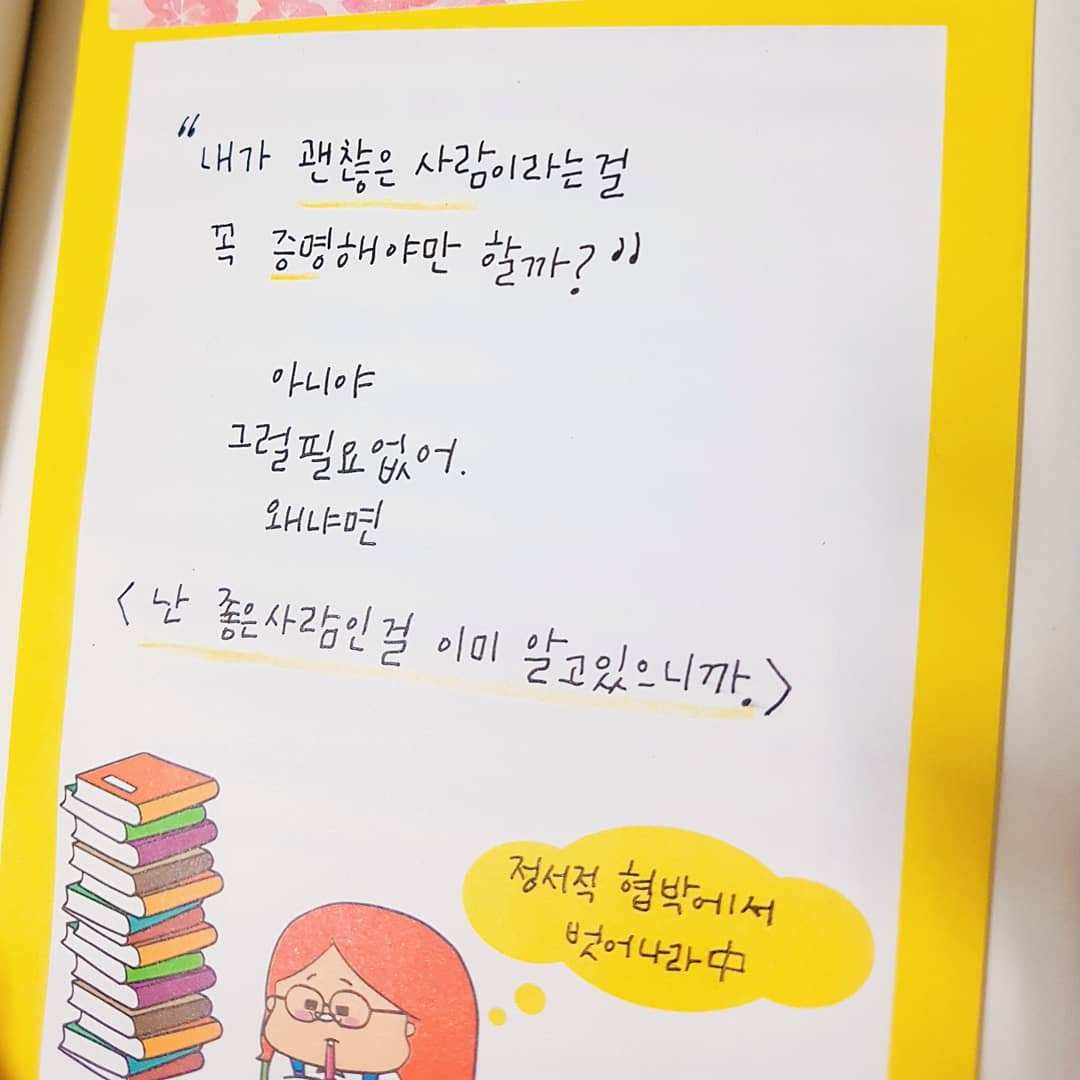 “내가 괜찮은 사람이라는걸
꼭 증명해야만 할까?”
아니야
그럴필요없어.
왜냐면
<난 좋은사람인걸 이미 알고있으니까.>
정서적 협박에서
벗어나라中